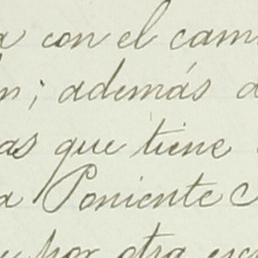 a con el cam
n; además a
as que tiene
a Poniente C
por otra esc